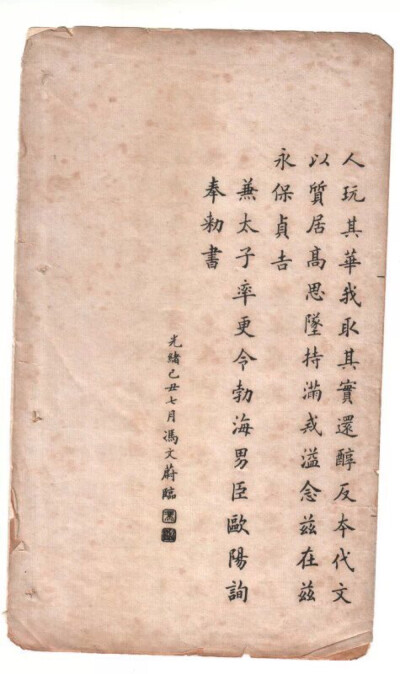 人玩其華我取其實還醇反本代文
以質居髙思墜持滿戒溢念兹在兹
永保貞吉
兼太子率更令勃海男臣歐陽詢
奉勑書
光緒己丑七月馮文蔚臨